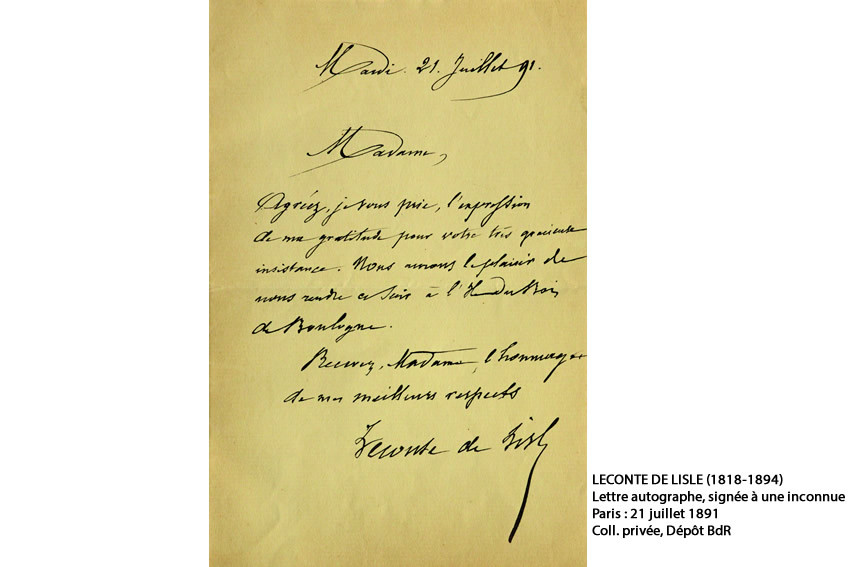 Mardi. 21. Juillet 91.
Madame,
Agréez, je vous prie, l'expression
de ma gratitude pour votre très gracieuse
insistance. Nous aurons le plaisir de
nous rendre ce soir à l'Ile du Bois
de Boulogne.
Recevez, Madame, l'hommage
de mes meilleurs respects
Leconte de Lisle
LECONTE DE LISLE (1818-1894)
Lettre autographe, signée à une inconnue
Paris : 21 juillet 1891
Coll. privée, Dépôt BdR